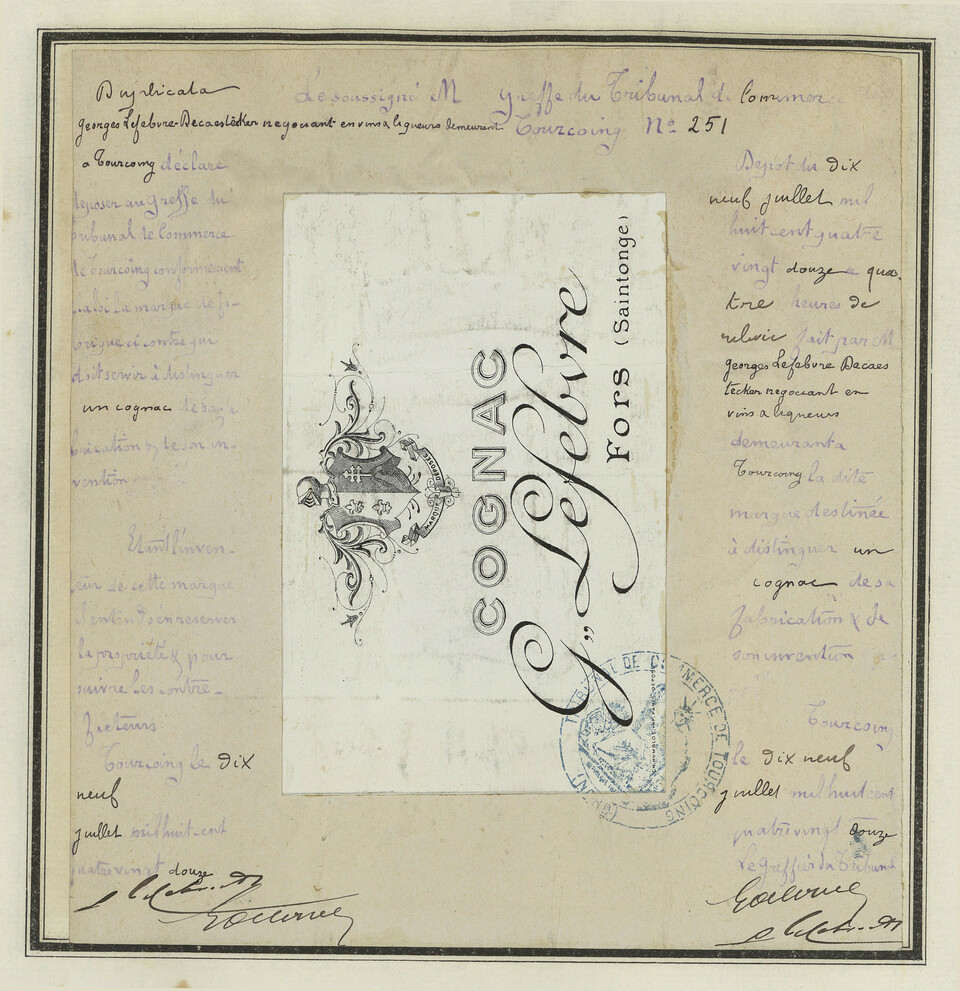 Duplicata
Le soussigné M
Georges Lefebvre-Decaestecker negociant en vins & liqueurs demeurant
a Tourcoing déclare
deposer au greffe du
Tribunal de Commerce
de Tourcoing conformement
à la loi la marque de fa-
brique ci contre qui
doit servir à distinguer
un cognac de sa fa-
brication & de son in-
vention
Etant l'inven-
teur de cette marque
il entend s'en reserver
la propriété & pour
suivre les contre-
facteurs
Tourcoing le dix
neuf
juillet mil huit cent
quatre vingt douze
MARQUE DÉPOSÉE
COGNAC
G. Lefebvre
Fors (Saintonge)
TRIBUNAL DE COMMERCE DE TOURCOING (NORD)
Greffe du Tribunal de Commerce
Tourcoing No 251
Depot du dix
neuf juillet mil
huit cent quatre
vingt douze a qua-
tre heures de
relevée fait par M
Georges Lefebvre Decaes
tecker negociant en
vins & liqueurs
demeurant a
Tourcoing la dite
marque destinée
à distinguer un
cognac de sa
fabrication & de
son invention
Tourcoing
le dix neuf
juillet mil huit cent
quatre vingt douze
Le Greffier du Tribunal